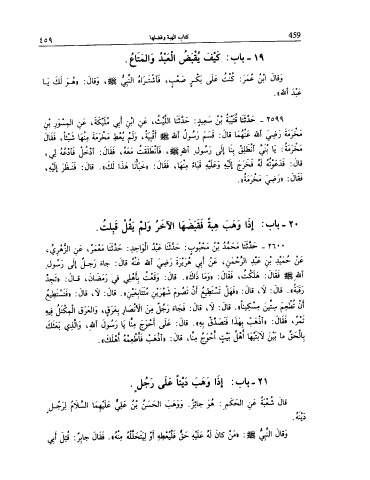 459 كتاب الهبة وفضلها ٤٥٩
١٩ - باب: كَيْفَ يُقْبَضُ الْعَبْدُ وَالْمَتَاعُ.
وَقَالَ ابْنُ عُمَرَ: كُنْتُ عَلَى بَكْرٍ صَعْبٍ، فَاشْتَرَاهُ النَّبِيُّ ﷺ، وَقَالَ: «هُوَ لَكَ يَا
عَبْدَ اللهِ».
٢٥٩٩ - حَدَّثَنَا قُتَيْبَةُ بْنُ سَعِيدٍ: حَدَّثَنَا اللَّيْثُ، عَنِ ابْنِ أَبِي مُلَيْكَةَ، عَنِ الْمِسْوَرِ بْنِ
مَخْرَمَةَ رَضِيَ اللهُ عَنْهُمَا قَالَ: قَسَمَ رَسُولُ اللهِ ﷺ أَقْبِيَةً، وَلَمْ يُعْطِ مَخْرَمَةَ مِنْهَا شَيْئاً، فَقَالَ
مَخْرَمَةُ: يَا بُنَيَّ انْطَلِقْ بِنَا إِلَى رَسُولِ اللهِ ﷺ، فَانْطَلَقْتُ مَعَهُ، فَقَالَ: ادْخُلْ فَادْعُهُ لِي،
قَالَ: فَدَعَوْتُهُ لَهُ فَخَرَجَ إِلَيْهِ وَعَلَيْهِ قَبَاءٌ مِنْهَا، فَقَالَ: «خَبَأْنَا هَذَا لَكَ». قَالَ: فَنَظَرَ إِلَيْهِ،
فَقَالَ: «رَضِيَ مَخْرَمَةُ».
٢٠ - باب: إِذَا وَهَبَ هِبَةً فَقَبَضَهَا الآخَرُ وَلَمْ يَقُلْ قَبِلْتُ.
٢٦٠٠ - حَدَّثَنَا مُحَمَّدُ بْنُ مَحْبُوبٍ: حَدَّثَنَا عَبْدُ الْوَاحِدِ: حَدَّثَنَا مَعْمَرٌ، عَنِ الزُّهْرِيِّ،
عَنْ حُمَيْدِ بْنِ عَبْدِ الرَّحْمٰنِ، عَنْ أَبِي هُرَيْرَةَ رَضِيَ اللهُ عَنْهُ قَالَ: جَاءَ رَجُلٌ إِلَى رَسُولِ
اللهِ ﷺ فَقَالَ: هَلَكْتُ، فَقَالَ: «وَمَا ذَاكَ». قَالَ: وَقَعْتُ بِأَهْلِي فِي رَمَضَانَ، قَالَ: «تَجِدُ
رَقَبَةً». قَالَ: لَا، قَالَ: «فَهَلْ تَسْتَطِيعُ أَنْ تَصُومَ شَهْرَيْنِ مُتَتَابِعَيْنِ». قَالَ: لَا، قَالَ: «فَتَسْتَطِيعُ
أَنْ تُطْعِمَ سِتِّينَ مِسْكِيناً». قَالَ: لَا، قَالَ: فَجَاءَ رَجُلٌ مِنَ الأَنْصَارِ بِعَرَقٍ، وَالْعَرَقُ الْمِكْتَلُ فِيهِ
تَمْرٌ، فَقَالَ: «اذْهَبْ بِهَذَا فَتَصَدَّقْ بِهِ». قَالَ: عَلَى أَحْوَجَ مِنَّا يَا رَسُولَ اللهِ، وَالَّذِي بَعَثَكَ
بِالْحَقِّ مَا بَيْنَ لَابَتَيْهَا أَهْلُ بَيْتٍ أَحْوَجُ مِنَّا، قَالَ: «اذْهَبْ فَأَطْعِمْهُ أَهْلَكَ».
٢١ - باب: إِذَا وَهَبَ دَيْناً عَلَى رَجُلٍ.
قَالَ شُعْبَةُ عَنِ الْحَكَمِ: هُوَ جَائِزٌ. وَوَهَبَ الْحَسَنُ بْنُ عَلِيٍّ عَلَيْهِمَا السَّلَامُ لِرَجُلٍ
دَيْنَهُ.
وَقَالَ النَّبِيُّ ﷺ: «مَنْ كَانَ لَهُ عَلَيْهِ حَقٌّ فَلْيُعْطِهِ أَوْ لِيَتَحَلَّلْهُ مِنْهُ». فَقَالَ جَابِرٌ: قُتِلَ أَبِي